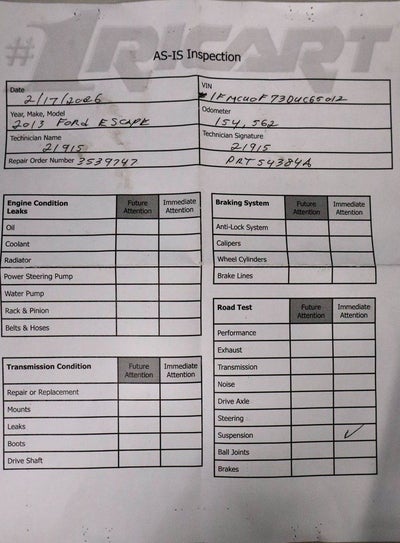 #1 RICART
AS-IS Inspection
Date
2/17/2026
VIN
1FMCU0F73DUC65012
Year, Make, Model
2013 FORD ESCAPE
Odometer
154,562
Technician Name
21915
Technician Signature
21915
Repair Order Number 3539747
PRT 54384A
Engine Condition Leaks Future Attention Immediate Attention
Oil
Coolant
Radiator
Power Steering Pump
Water Pump
Rack & Pinion
Belts & Hoses
Transmission Condition Future Attention Immediate Attention
Repair or Replacement
Mounts
Leaks
Boots
Drive Shaft
Braking System Future Attention Immediate Attention
Anti-Lock System
Calipers
Wheel Cylinders
Brake Lines
Road Test Future Attention Immediate Attention
Performance
Exhaust
Transmission
Noise
Drive Axle
Steering
Suspension ✓
Ball Joints
Brakes